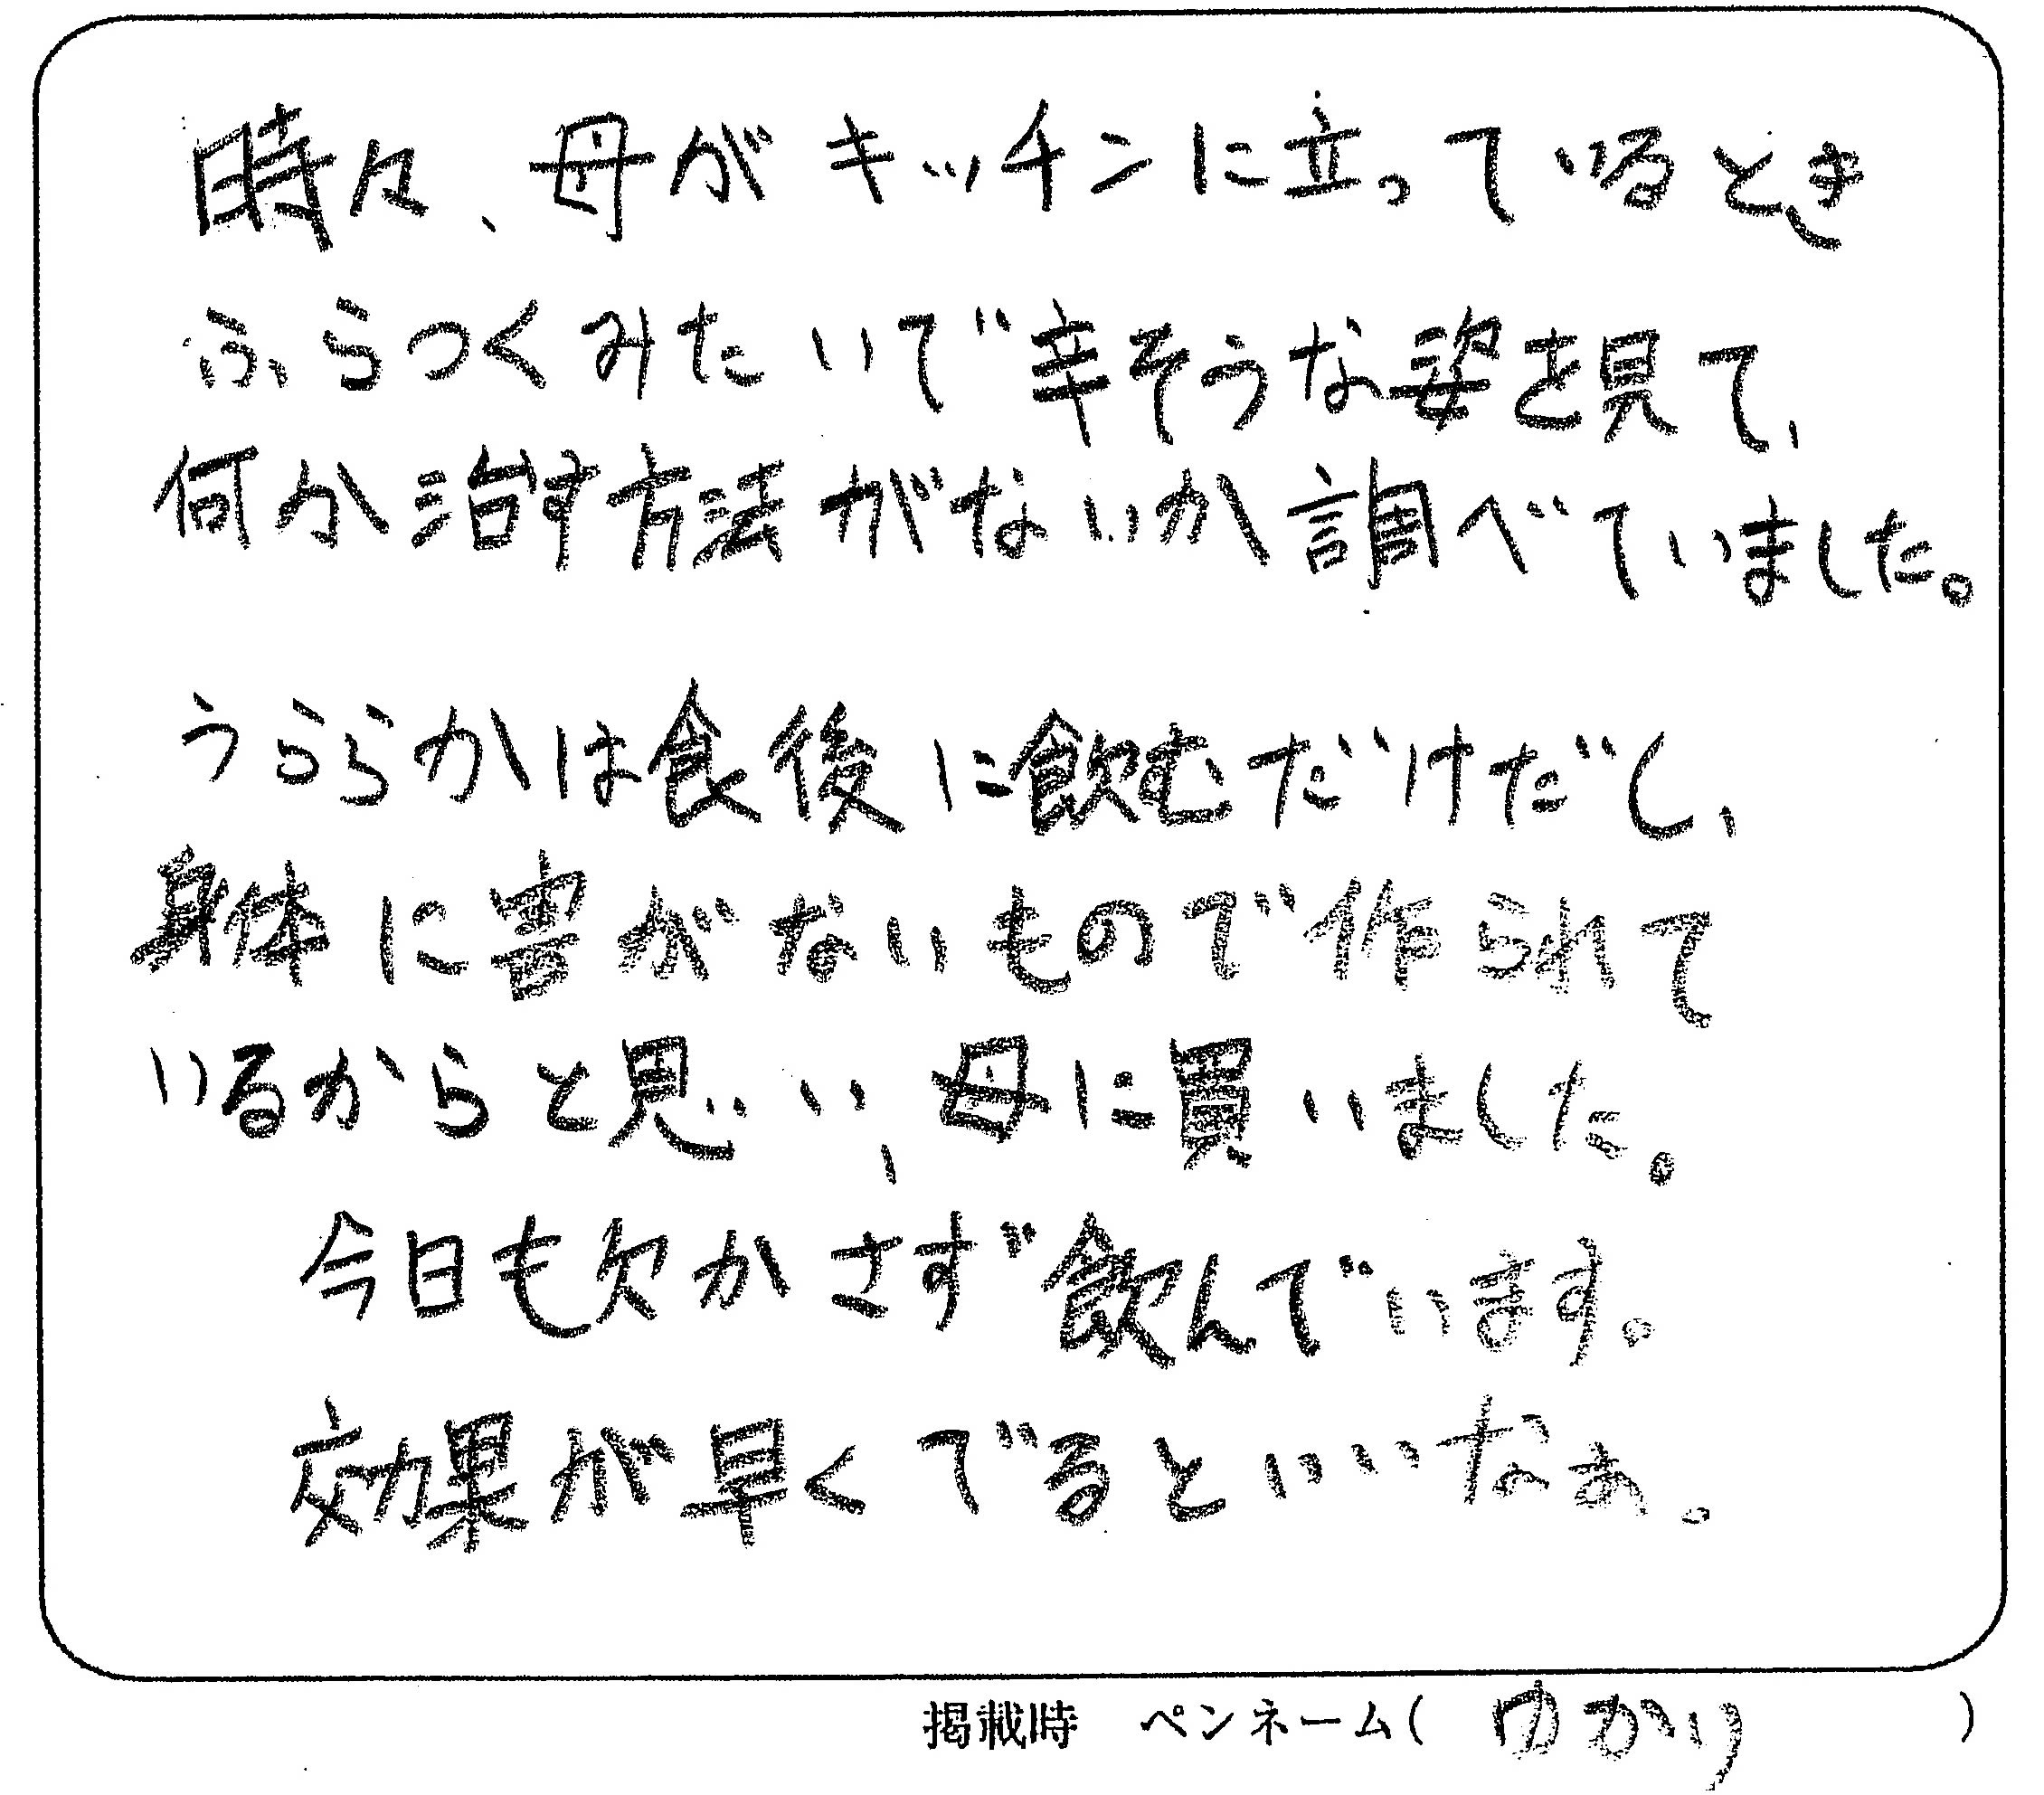 時々、母がキッチンに立っているとき
ふらつくみたいで辛そうな姿を見て、
何か治す方法がないか調べていました。
うららかは食後に飲むだけだし、
身体に害がないもので作られて
いるからと思い、母に買いました。
今日も欠かさず飲んでいます。
効果が早くでるといいなぁ。
掲載時 ペンネーム( ゆかり )